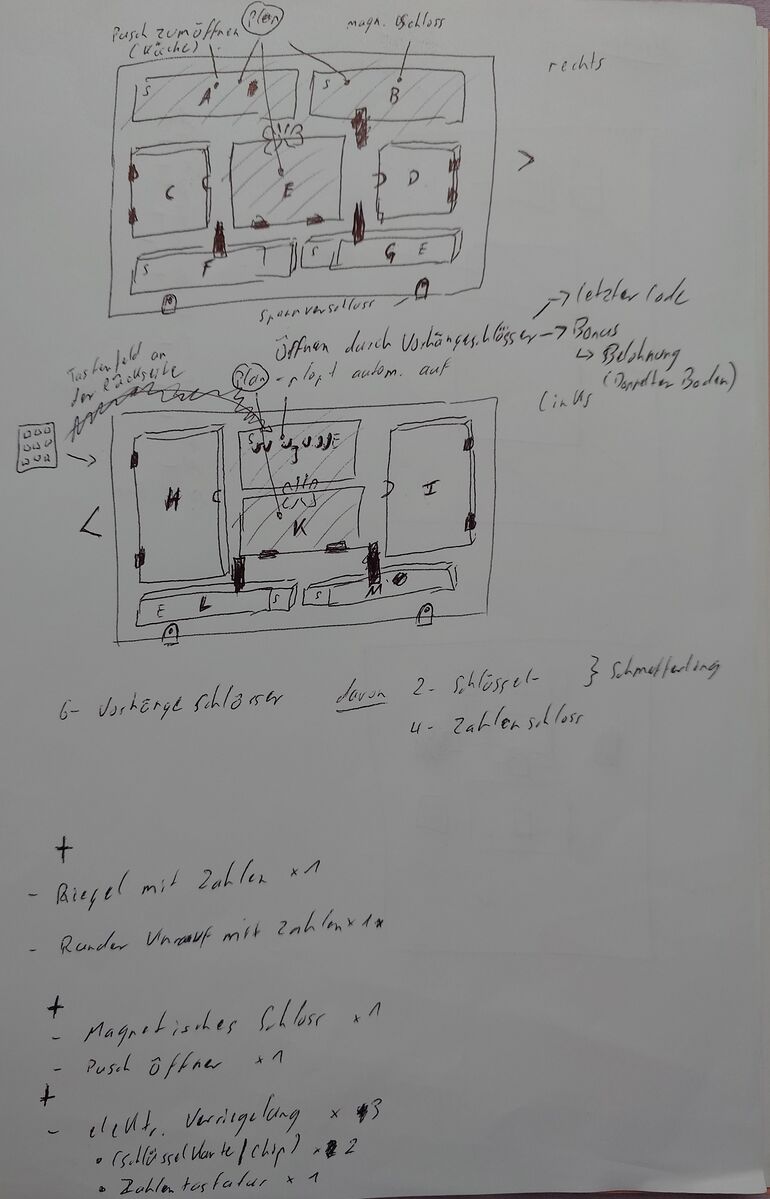 Plan
magn. Schloss
Pusch zum öffnen
(Küche)
rechts
S
A
S
B
C
E
D
>
S
F
S
G E
Spannverschluss
→ letzter Code
Öffnen durch Vorhängeschlösser → Bonus
↳ Belohnung
(Doppelter Boden)
Tastenfeld an
der Rückseite
Plan
- plopt autom. auf
links
S
J
E
H
I
K
<
E
L
S
S
M
6- Vorhänge schlösser davon 2- Schlüssel- } Schmetterling
4- Zahlenschloss
+
- Riegel mit Zahlen x 1
- Runder mit Zahlen x 1
+
- Magnetisches Schloss x 1
- Pusch Öffner x 1
+
- elektr. Verriegelung x 3
• (Schlüsselkarte/Chip) x 2
• Zahlentastatur x 1